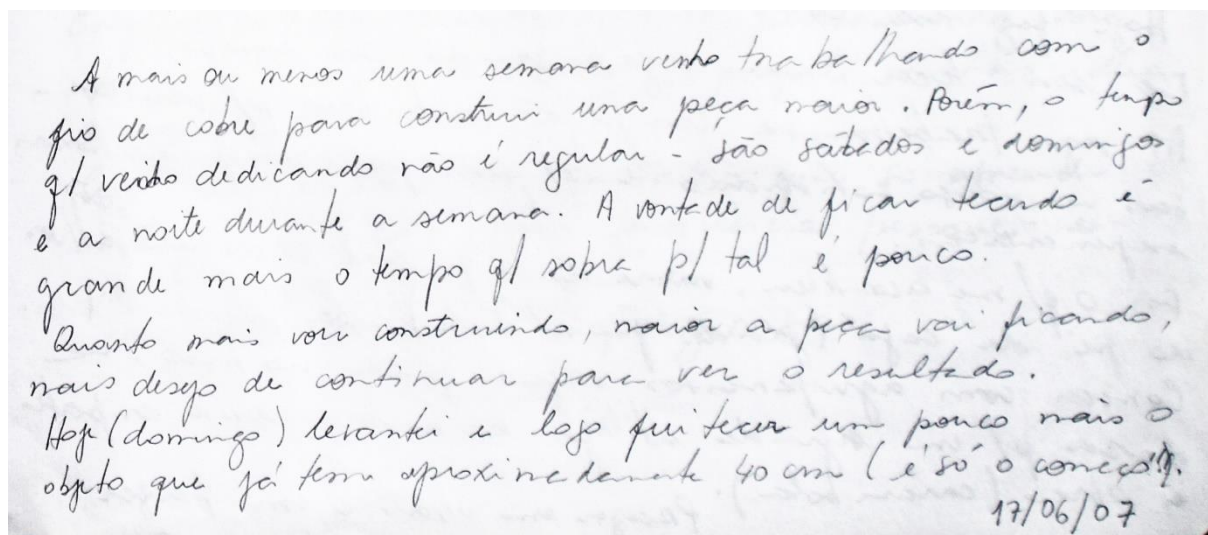 A mais ou menos uma semana venho trabalhando com o
fio de cobre para construir uma peça maior. Porém, o tempo
q/ venho dedicando não é regular - são sábados e domingos
e a noite durante a semana. A vontade de ficar tecendo é
grande mais o tempo q/ sobra p/ tal é pouco.
Quanto mais vou construindo, maior a peça vai ficando,
mais desejo de continuar para ver o resultado.
Hoje (domingo) levantei e logo fui tecer um pouco mais o
objeto que já tem aproximadamente 40 cm (é só o começo!!).
17/06/07